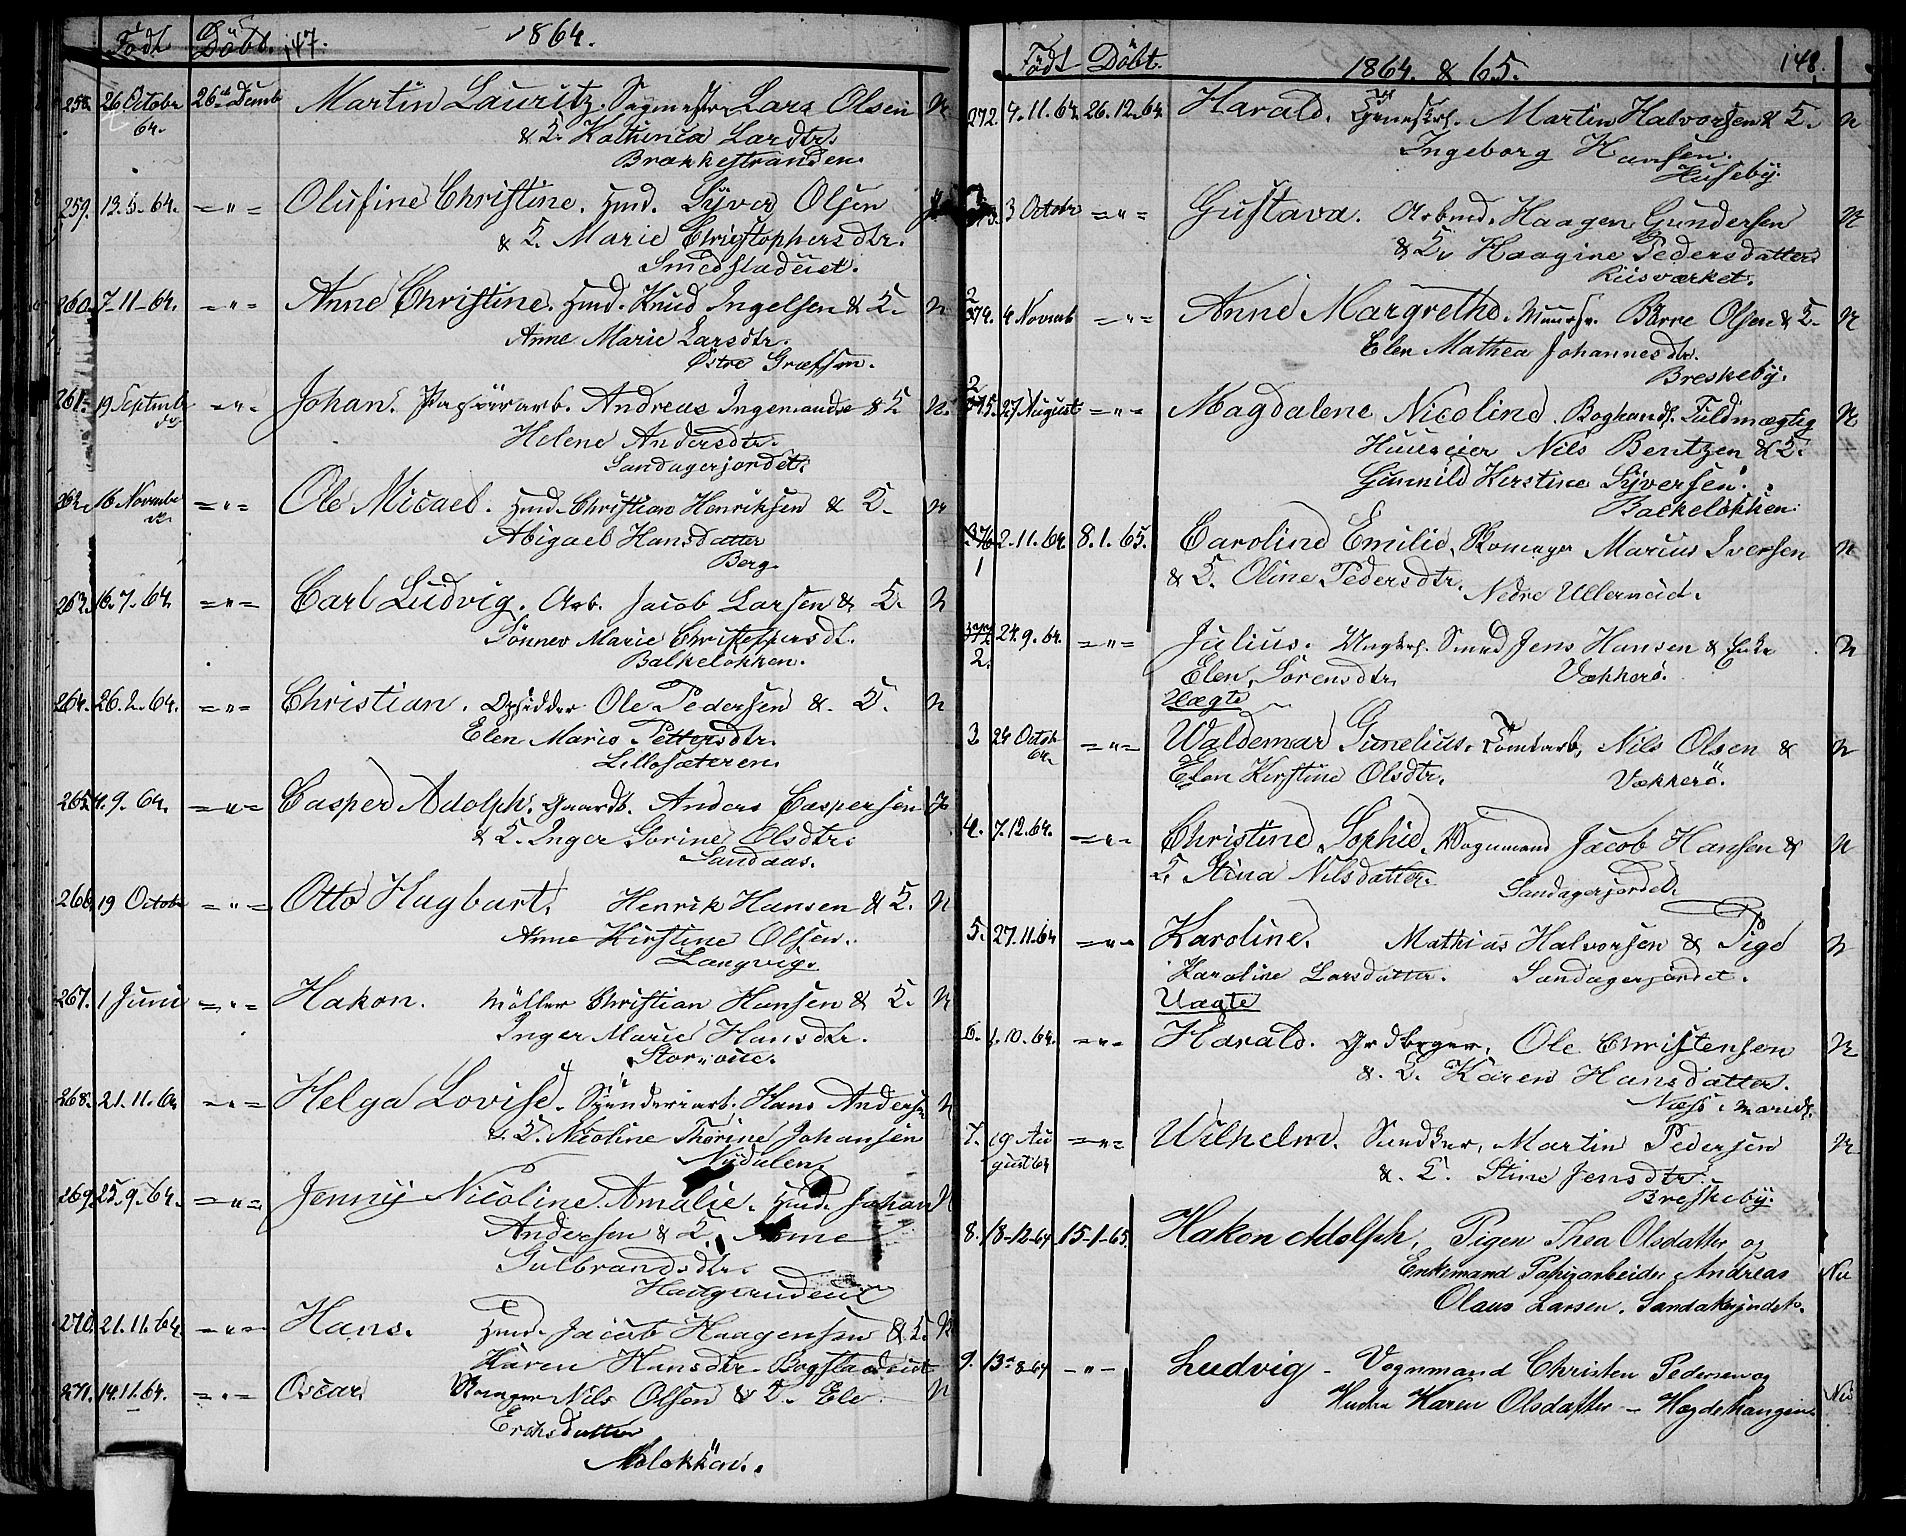 Födt Döbt. 147. 1864.
258. 26 Octobr 26 Decmb Martin Lauritz. Sagmester Lars Olsen N
64. & K. Kathinca Larsdtr.
Brækkestranden.
259. 13.5-64. =〃= Olufine Christine. Hmd. Syver Olsen
& K. Marie Christophersdtr.
Smedstadeiet.
260. 7-11-64. =〃= Anne Christine. Hmd. Knud Ingelsen & K. N
Anne Marie Larsdtr.
Østre Græfsen.
261. 19 Septembr =〃= Johan. Papiirarb. Andreas Ingemandsen & K N.
Helene Andersdtr.
Sandagerjordet.
262. 16 Novembr =〃= Ole Micael. Hmd. Christian Henriksen & K. N
Abigael Hansdatter
Berg.
263. 16.7.64 =〃= Carl Ludvig. Arb. Jacob Larsen & K. N
Sønnev Marie Christoffersdt.
Balkeløkken.
264. 26.2.64. =〃= Christian. Opsidder Ole Pedersen & K. N
Elen Marie Pettersdtr.
Lillosæteren.
265. 4.9.64. =〃= Casper Adolph. Gaardb. Anders Caspersen
& K. Inger Gorine Olsdtr.
Sandaas.
266. 19 Octobr =〃= Otto Hagbart. Henrik Hansen & K. N
Anne Kirstine Olsen.
Langvig.
267. 1 Juni =〃= Hakon. Möller Christian Hansen & K. N
Inger Marie Hansdtr.
268. 21.11.64 =〃= Helga Lovise. Spinderiarb. Hans Andersen N
& K. Nicoline Thorine Johansen
Nydalen.
269. 25.9.64. =〃= Jenny Nicoline Amalie. Hmd. Johan N
Andersen & K. Anne
Gulbrandsdtr.
Haugerudeiet
270. 21.11.64 =〃= Hans. Hmd. Jacob Haagensen & K. N
Karen Hansdtr. Bogstadeiet
271. 14.11.64. =〃= Oscar Nils Olsen & K. Ele N
Ericksdatter
Möløkken.
Födt Döbt. 1864. & 65. 148.
272. 4.11.64. 26.12.64 Harald. Martin Halvorsen & K. N
Ingeborg Hansen.
Huseby.
3 Octobr =〃= Gustava. Arbmd. Haagen Gundersen N
& K. Haagine Pedersdatter
Riisværket.
274. 4 Novemb =〃= Anne Margrethe. Muursv. Børre Olsen & K. N
Elen Mathea Johannesdtr.
Breskeby.
275. 27 August =〃= Magdalene Nicoline. Boghandl. Fuldmægtig N
Huuseier Nils Bentzen & K.
Gunnild Kirstine Syversen.
Balkeløkken.
376 2.11.64. 8.1.65. Caroline Emilie, Skomager Marius Iversen N
1 & K. Oline Pedersdtr. Nedre Ullern
377 24.9.64. =〃= Julius. Ungkrl. Smed Jens Hansen & Enke N
2. Elen Sörensdtr Vækkerø.
Uægte
3 24 Octob =〃= Waldemar Gunelius. Tomtarb. Nils Olsen & N
64. Elen Kirstine Olsdtr. Vækkerö.
4. 7.12.64. =〃= Christine Sophie. Vognmand Jacob Hansen & N
K. Stina Nilsdatter. Sandagerjordet
5. 27.11.64 =〃= Karoline. Mathias Halvorsen & Pige N
Karoline Larsdatter. Sandagerjordet.
Uægte
6. 1.10.64. =〃= Harald. Grdbrger. Ole Christensen N
& K. Karen Hansdatter.
Næss i Marid.
7. 19 Au =〃= Wilhelm. Snedker, Martin Pedersen N
gust 64 & K. Stine Jensdtr.
Breskeby.
8. 18-12-64 15-1-65. Hakon Adolph, Pigen Thea Olsdatter og
Enkemand Papirarbeider Andreas Nei
Olaus Larsen. Sandakerjordet.
9. 13-8-64 -〃- Ludvig - Vognmand Christen Pedersen og
Hustru Karen Olsdatter - Hegdehaugen. Nei